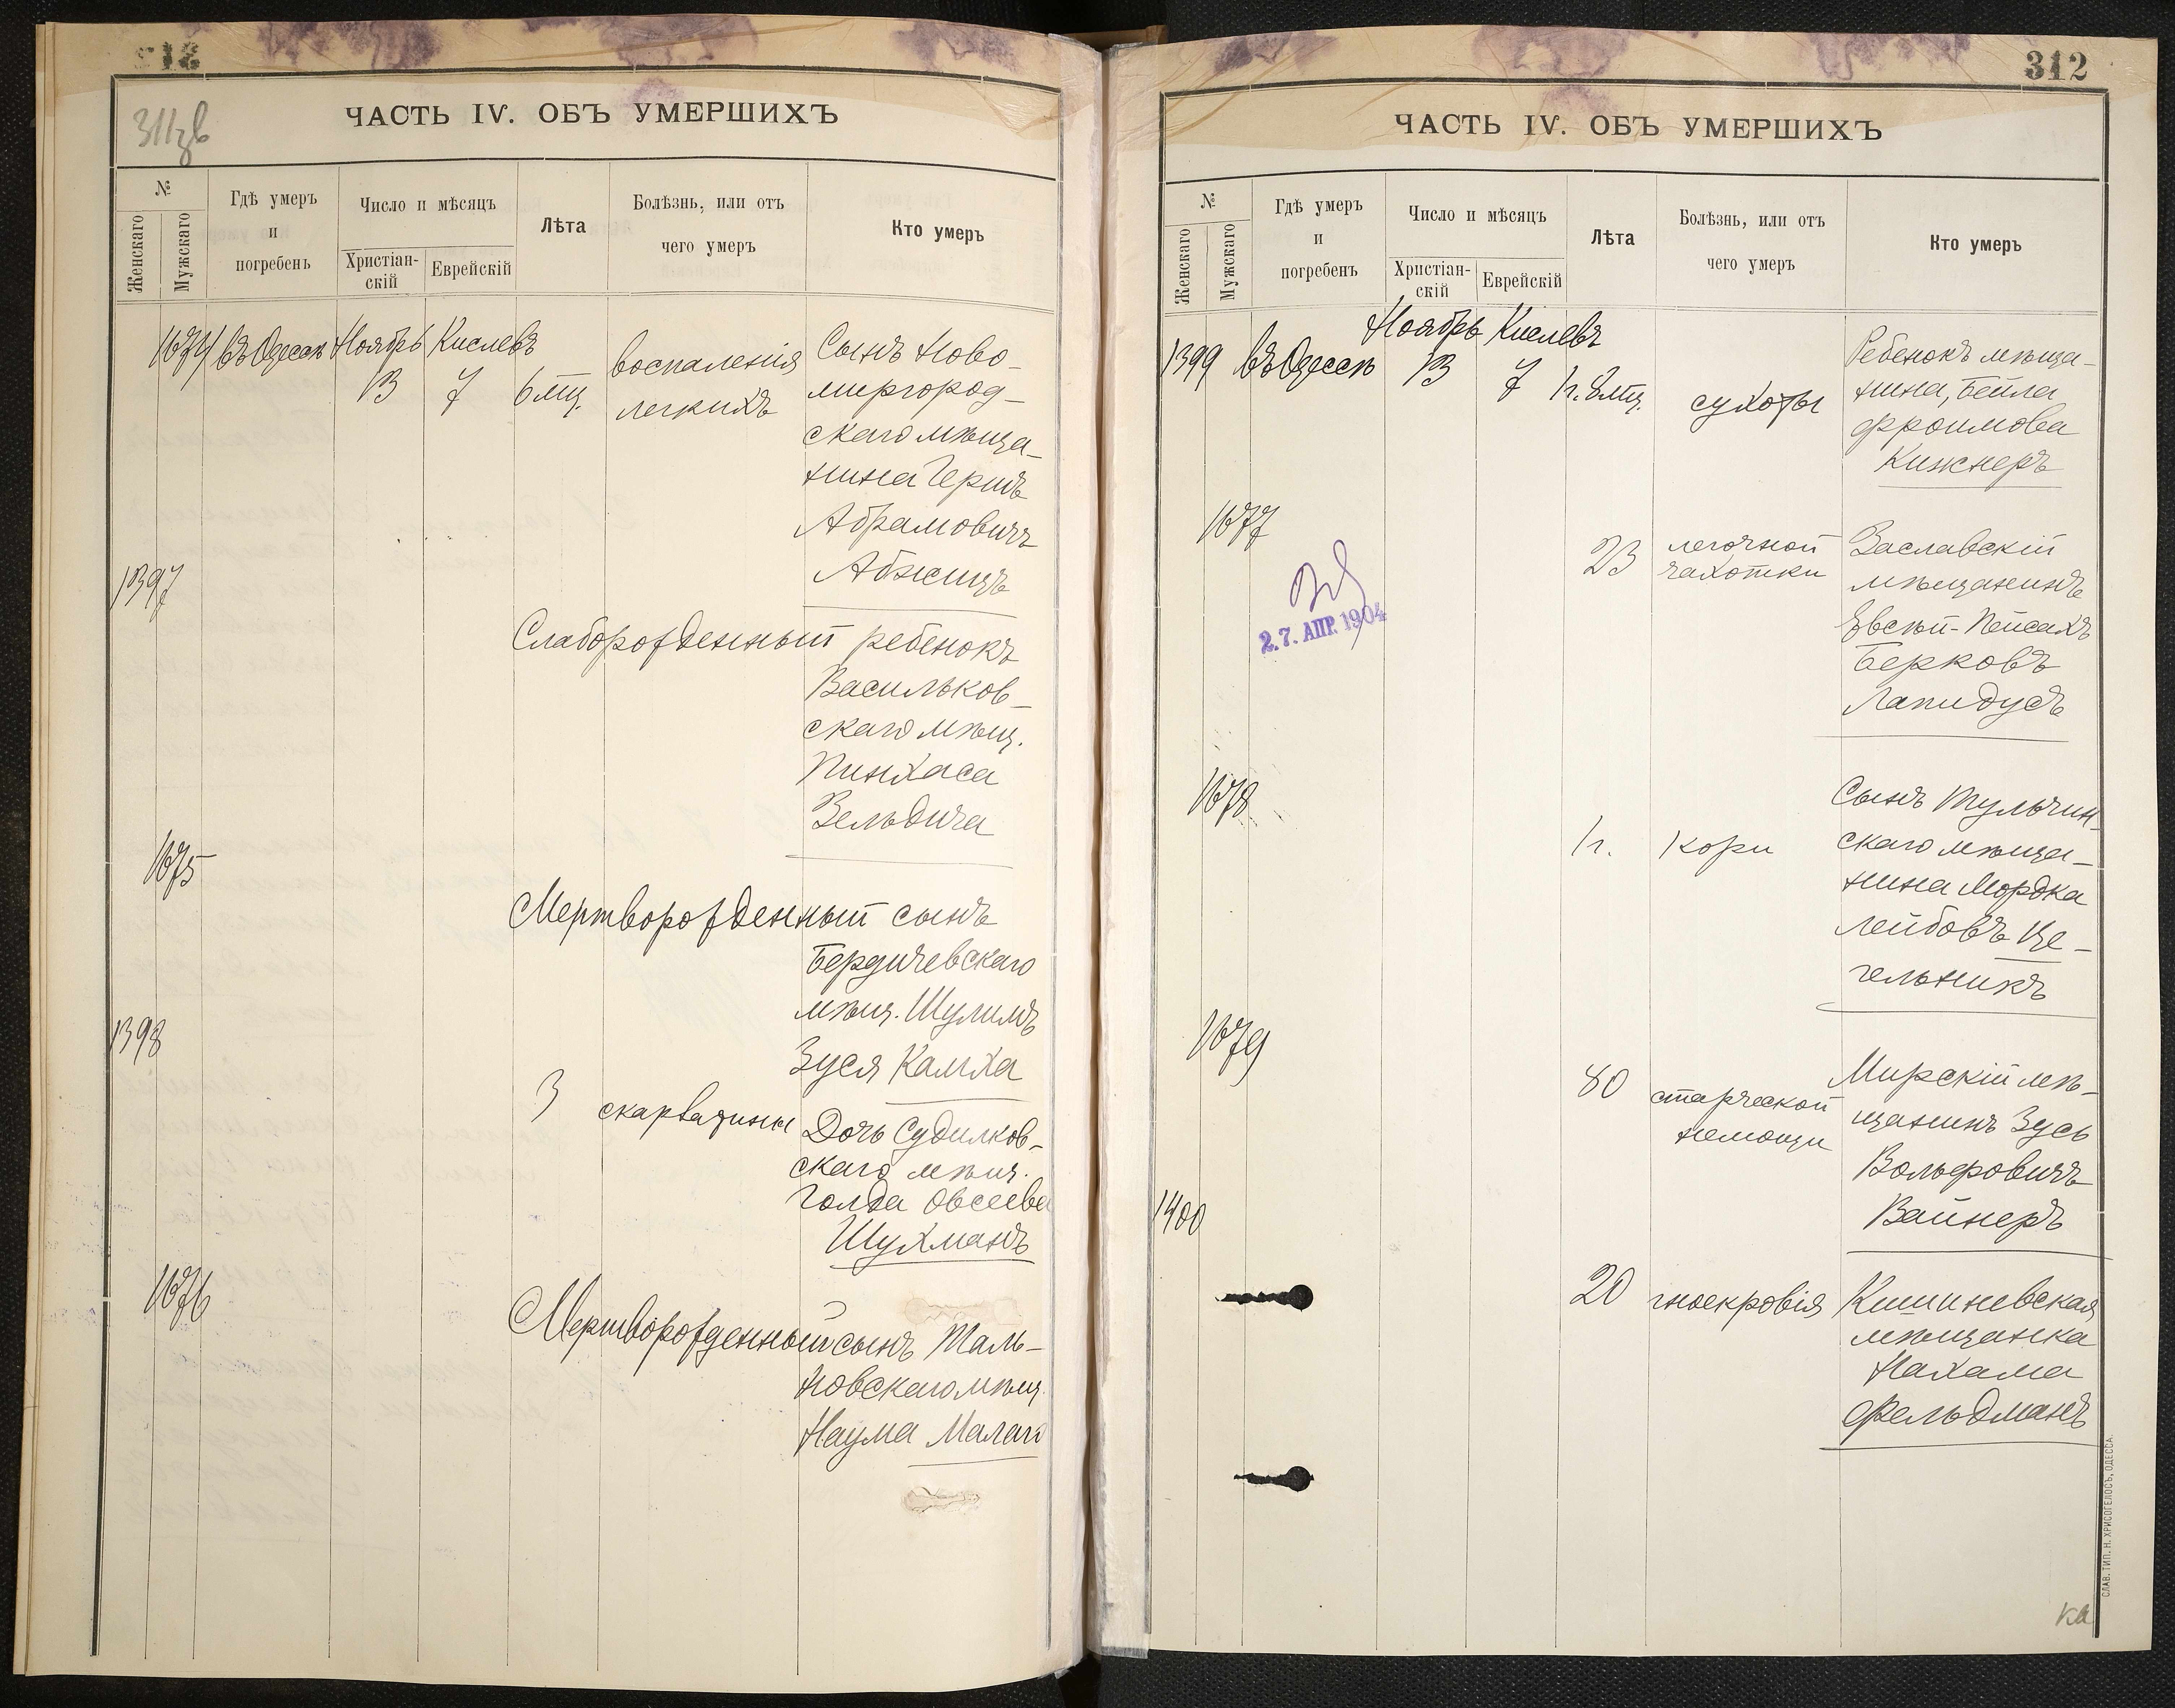 312
311зв
ЧАСТЬ IV. ОБЪ УМЕРШИХЪ
№
Женскаго
Мужскаго
Гдѣ умеръ
и
погребенъ
Число и мѣсяцъ
Христіан-
скій
Еврейскій
Лѣта
Болѣзнь, или отъ
чего умеръ
Кто умеръ
1674 въ Одессѣ Ноябрь Кислевъ
13 7 6 мц.
воспаленія
легкихъ
Сынъ Ново-
миргород-
скаго мѣща-
нина Гершъ
Абрамовичъ
Абжицъ
1397
Слаборожденный ребенокъ
Васильков-
скаго мѣщ.
Пинхаса
Зельдича
1675
Мертворожденный сынъ
Бердичевскаго
мѣщ. Шулимъ
Зуся Камха
1398
3 скарлатины
Дочь Судилков-
скаго мѣщ.
Голда Овсеева
Шухманъ
1676
Мертворожденный сынъ Таль-
новскаго мѣщ.
Наума Малаго
312
ЧАСТЬ IV. ОБЪ УМЕРШИХЪ
№
Женскаго
Мужскаго
Гдѣ умеръ
и
погребенъ
Число и мѣсяцъ
Христіан-
скій
Еврейскій
Лѣта
Болѣзнь, или отъ
чего умеръ
Кто умеръ
Ноябрь Кислевъ
1399 въ Одессѣ 13 7 1 г. 8 мц.
сухоты
Ребенокъ мѣща-
нина, Бейла
Фроимова
Кижнеръ
1677
23 легочной
чахотки
Заславскій
мѣщанинъ
Евсѣй-Пейсахъ
Берковъ
Лапидусъ
27. АПР. 1904
1678
1 г. кори
Сынъ Тульчин-
скаго мѣща-
нина Мордка
Лейбовъ Це-
гельникъ
1679
80 старческой
немощи
Мирскій мѣ-
щанинъ Зусь
Вольфовичъ
Вайнеръ
1400
20 гноекровія
Кишиневская
мѣщанка
Нахама
Фельдманъ
СЛАВ. ТИП. Н. ХРИСОГЕЛОСЪ, ОДЕССА.